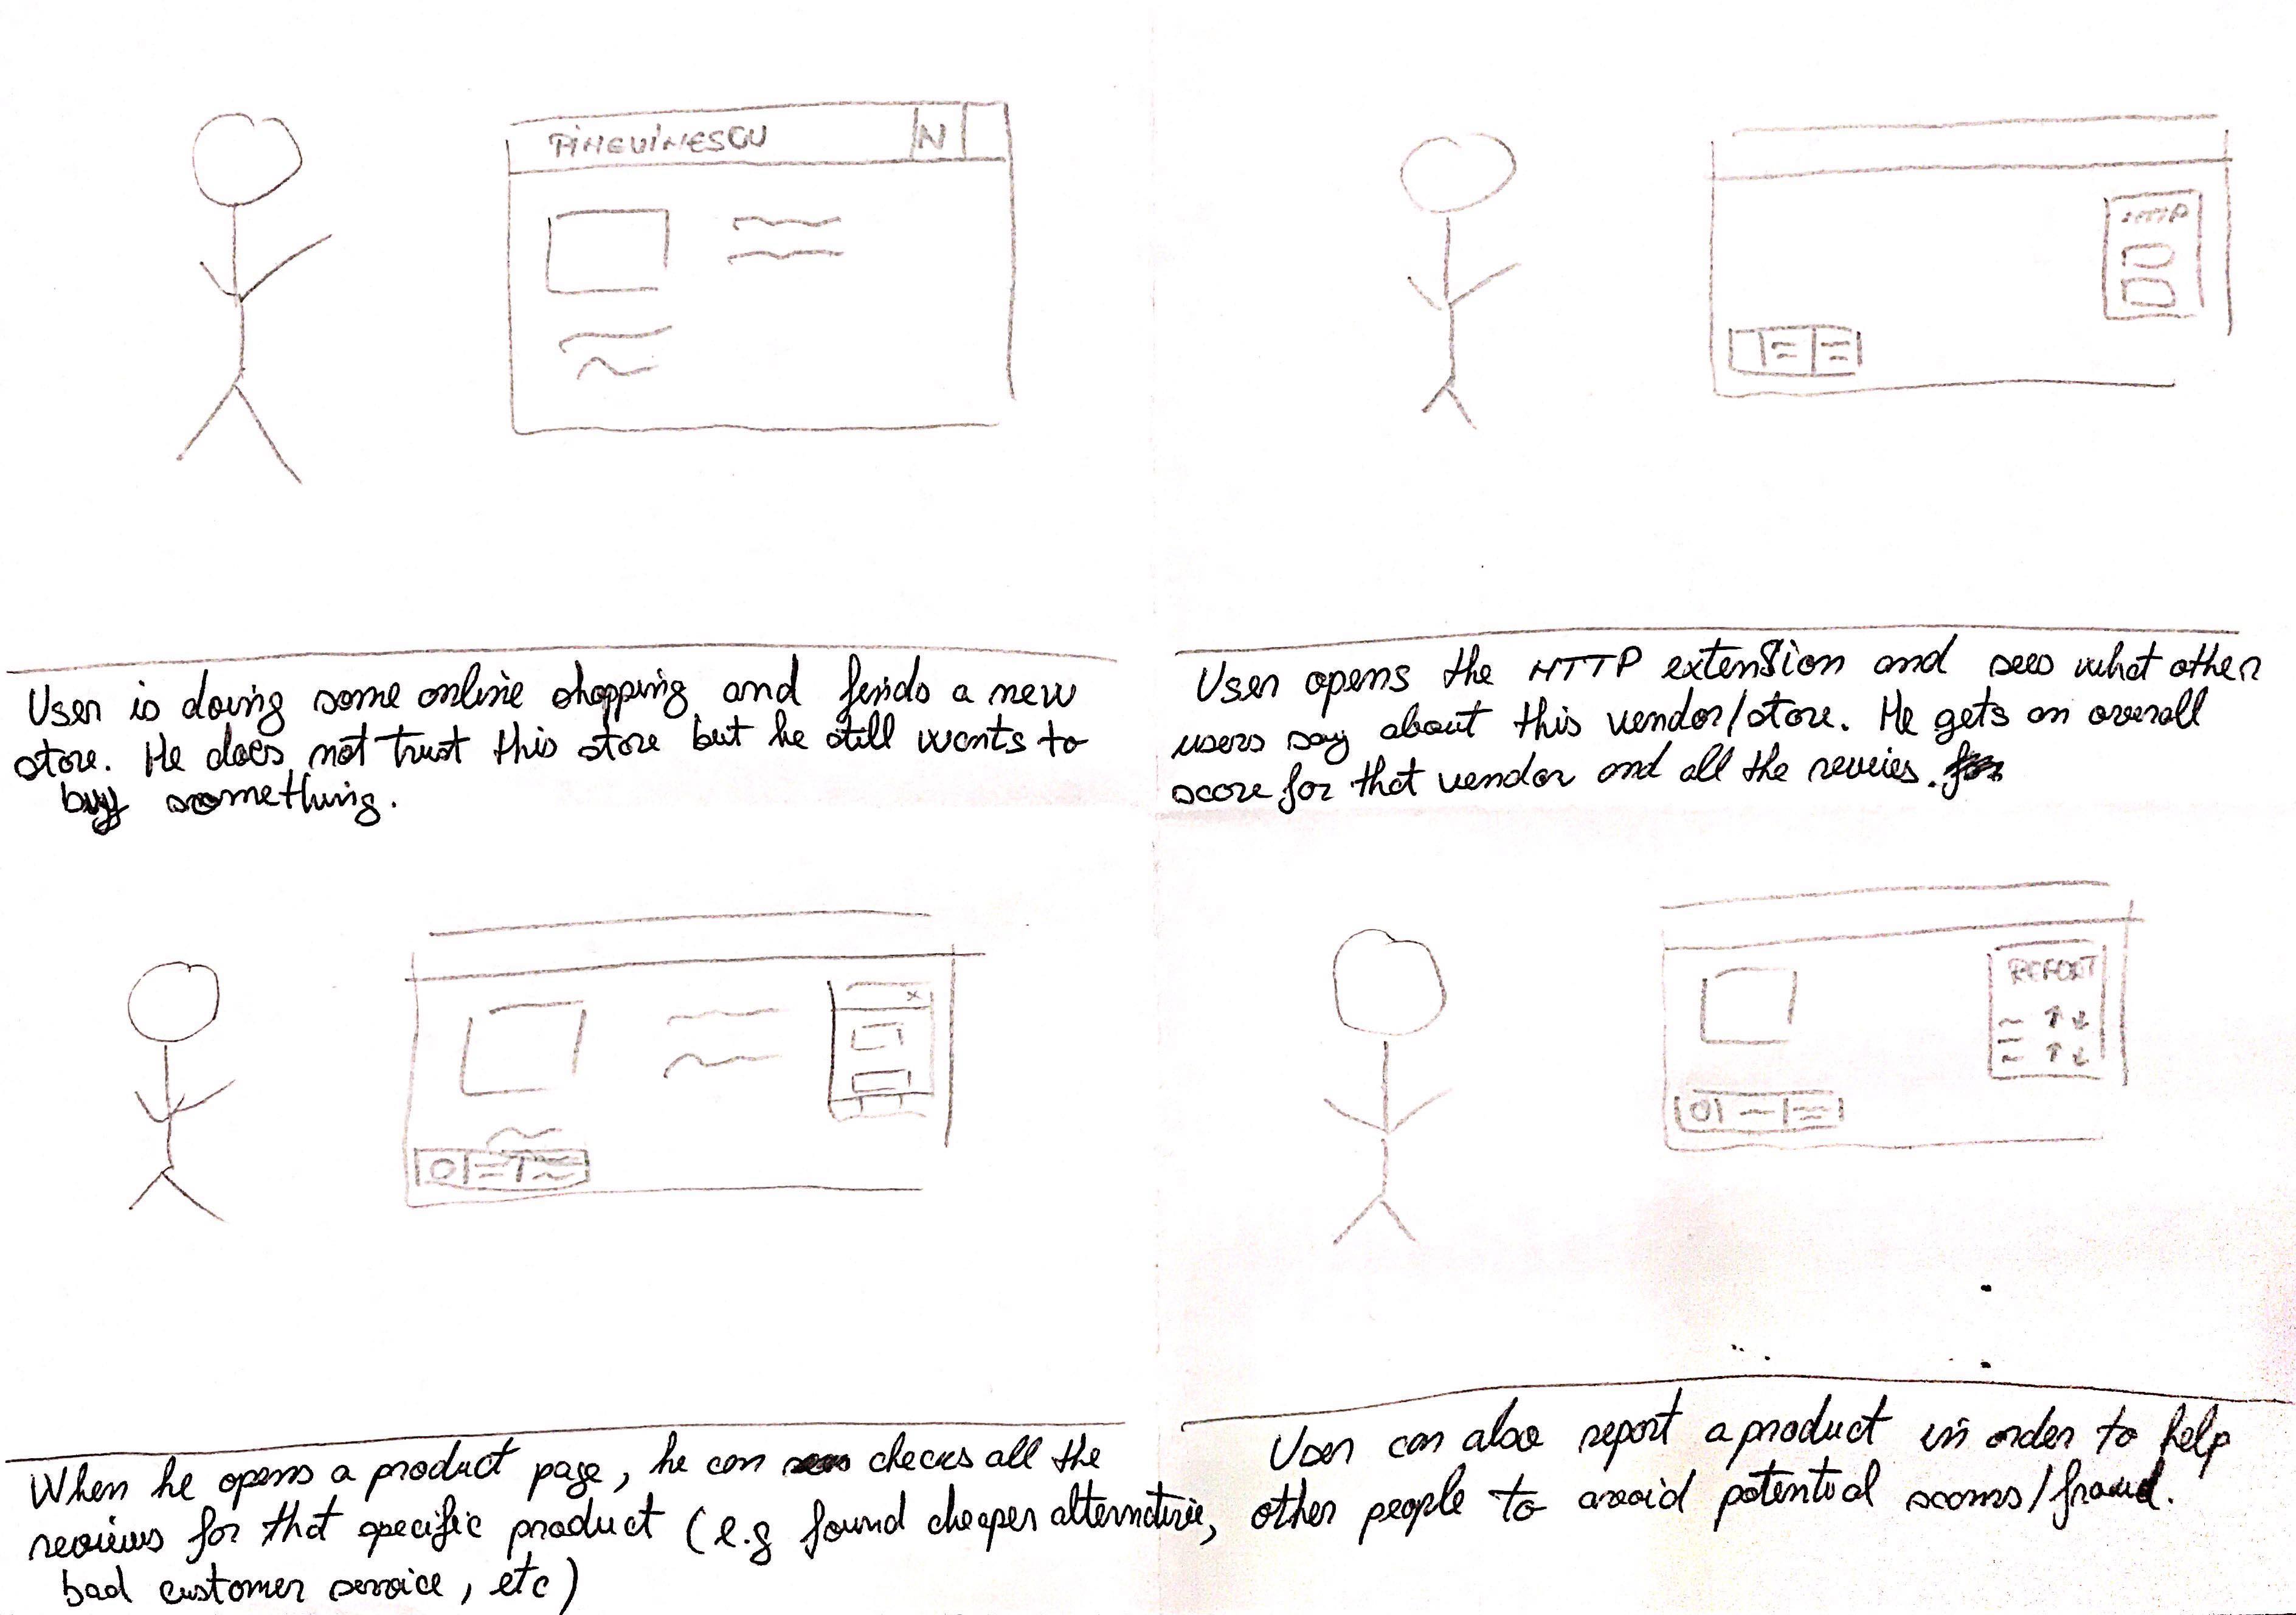 PINGUINESCU N
User is doing some online shopping and finds a new
store. He does not trust this store but he still wants to
buy something.
HTTP
User opens the HTTP extension and sees what other
users say about this vendor/store. He gets an overall
score for that vendor and all the reveies.
X
When he opens a product page, he can checks all the
reviews for that specific product (e.g found cheaper alternative,
bad customer service, etc)
REPORT
User can also report a product in order to help
other people to avoid potential scams/fraud.